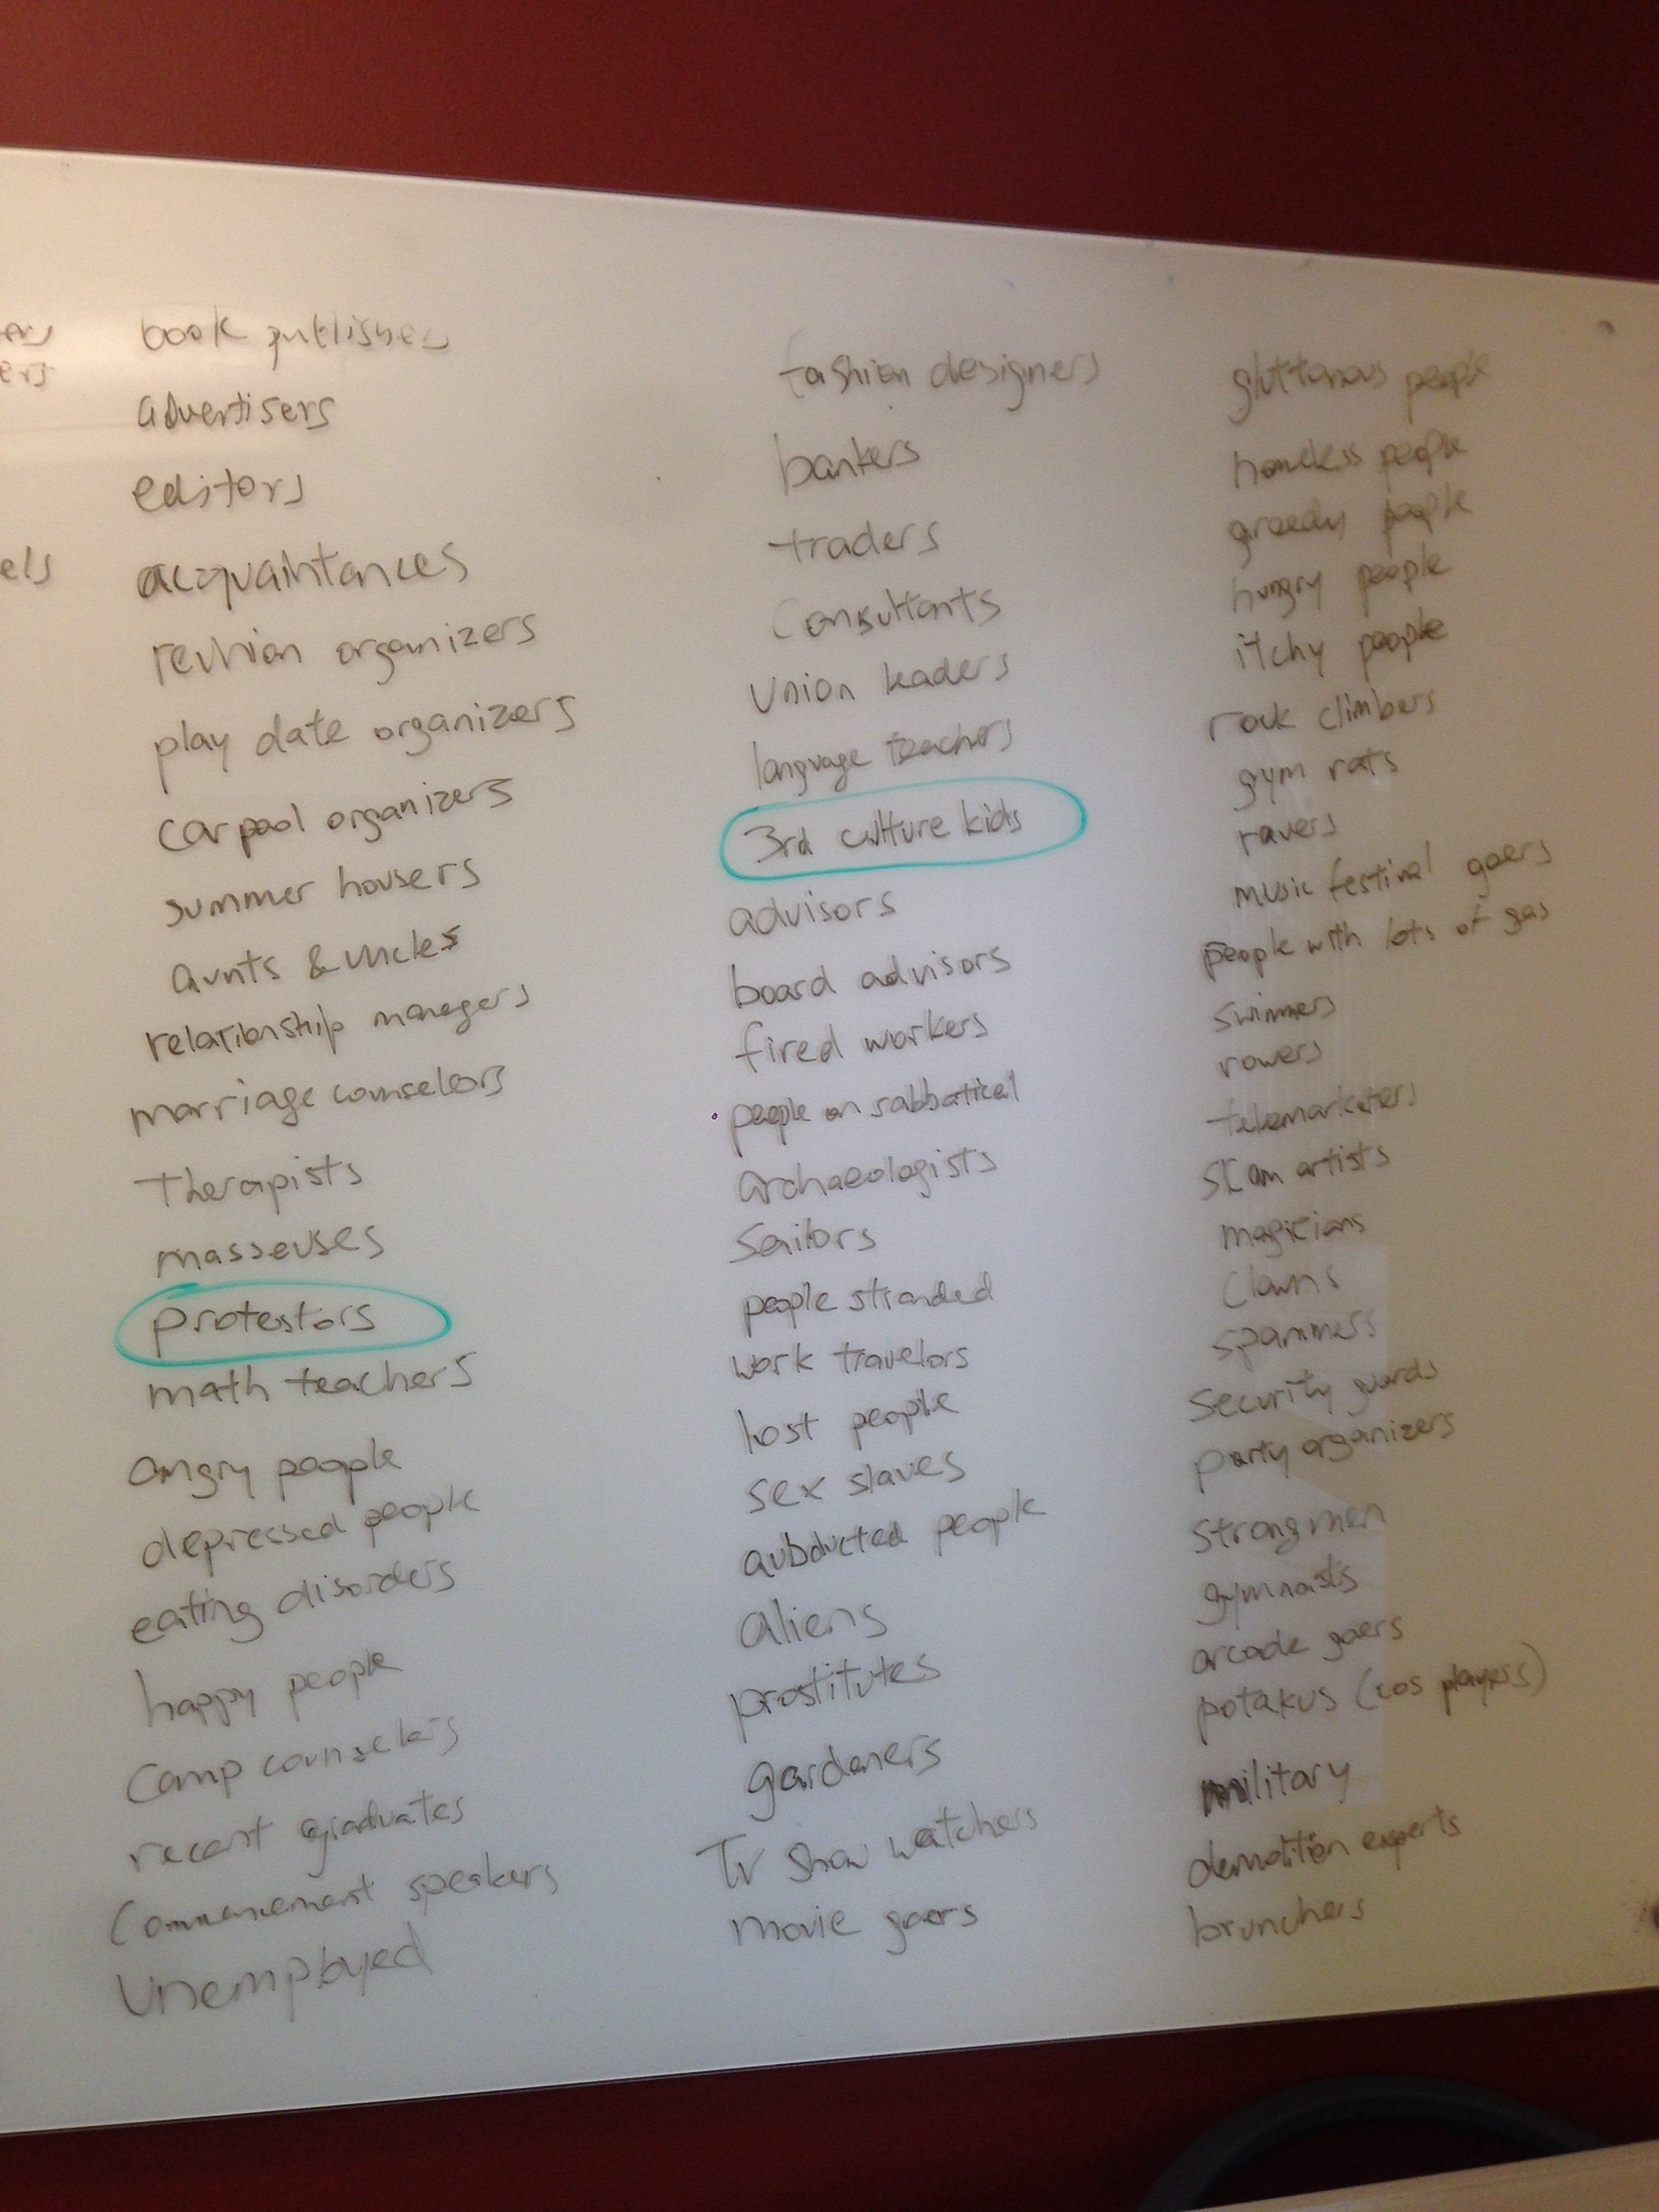 ers
els
book publishers
advertisers
editors
acquaintances
reunion organizers
play date organizers
carpool organizers
summer housers
aunts & uncles
relationship managers
marriage counselors
therapists
masseuses
protestors
math teachers
angry people
depressed people
eating disorders
happy people
camp counselors
recent graduates
commencement speakers
unemployed
fashion designers
bankers
traders
consultants
union leaders
language teachers
3rd culture kids
advisors
board advisors
fired workers
people on sabbatical
archaeologists
sailors
people stranded
work travelors
lost people
sex slaves
aubducted people
aliens
prostitutes
gardeners
TV show watchers
movie goers
gluttonous people
homeless people
greedy people
hungry people
itchy people
rock climbers
gym rats
ravers
music festival goers
people with lots of gas
swimmers
rowers
telemarketers
scam artists
magicians
clowns
spammers
security guards
party organizers
strongmen
gymnasts
arcade goers
potakus (cos players)
military
demolition experts
brunchers